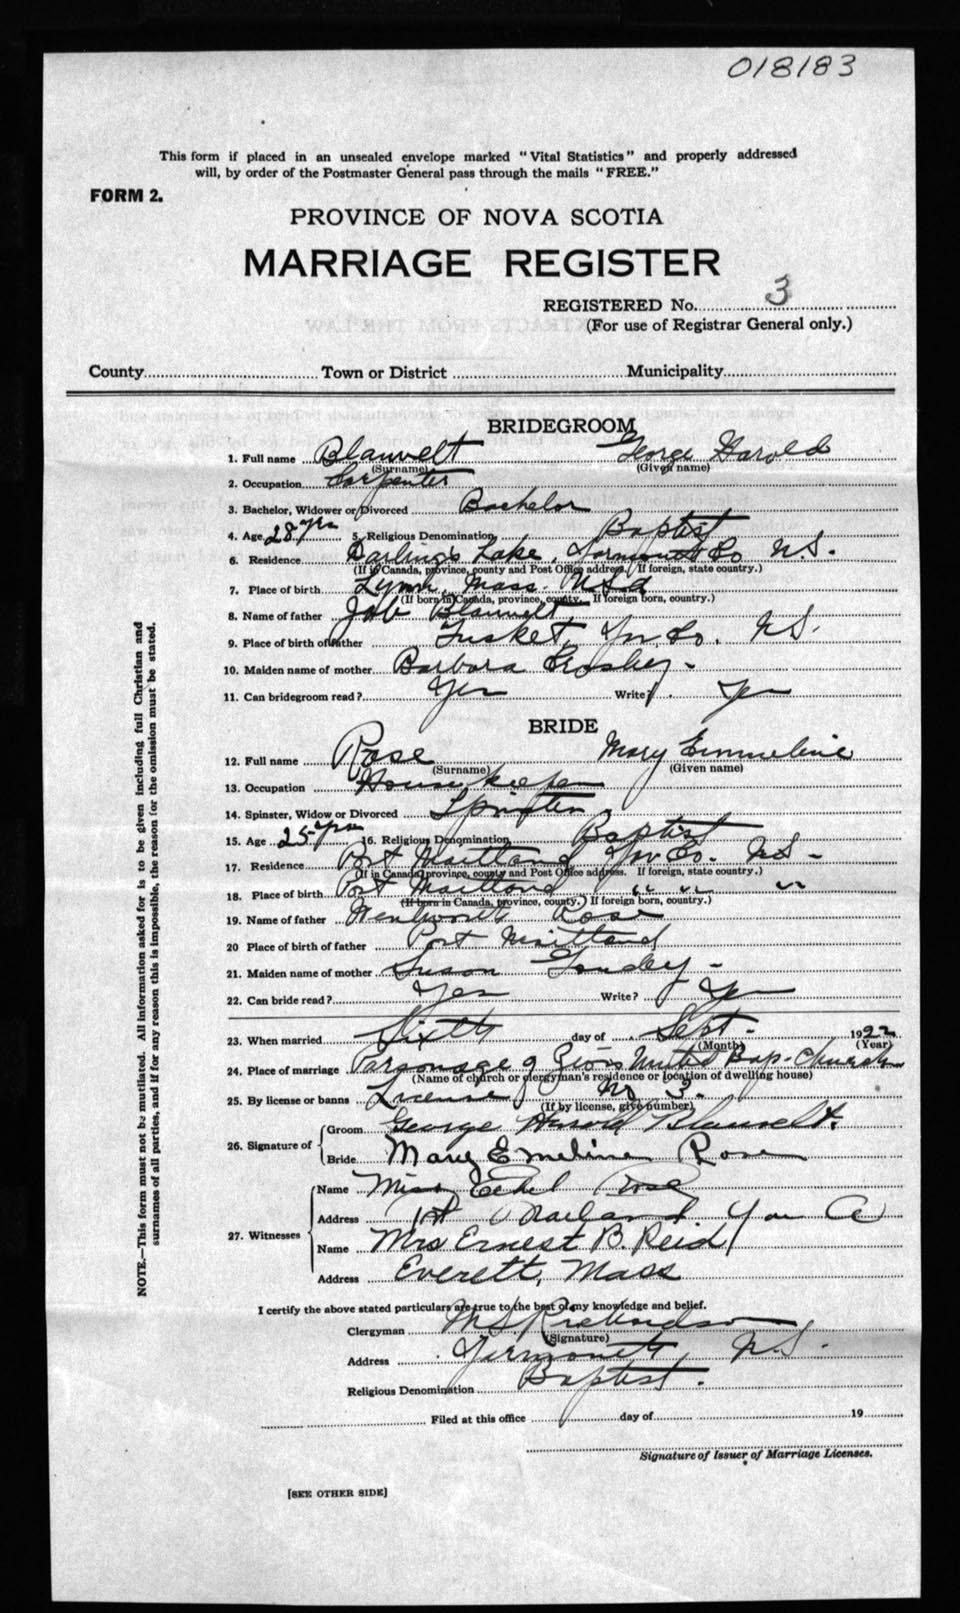 018183
This form if placed in an unsealed envelope marked "Vital Statistics" and properly addressed
will, by order of the Postmaster General pass through the mails "FREE."
FORM 2.
PROVINCE OF NOVA SCOTIA
MARRIAGE REGISTER
REGISTERED No. 3
(For use of Registrar General only.)
County Town or District Municipality
BRIDEGROOM
1. Full name Blauvelt George Harold
(Surname) (Given name)
2. Occupation Carpenter
3. Bachelor, Widower or Divorced Bachelor
4. Age 28 yrs 5. Religious Denomination Baptist
6. Residence Darling's Lake, Yarmouth Co N.S.
(If in Canada, province, county and Post Office address. If foreign, state country.)
7. Place of birth Lynn, Mass USA
(If born in Canada, province, county. If foreign born, country.)
8. Name of father Job Blauvelt
9. Place of birth of father Tusket, Yar. Co. N.S.
10. Maiden name of mother Barbara Crosby -
11. Can bridegroom read? Yes Write? Yes
BRIDE
12. Full name Rose Mary Emmeline
(Surname) (Given name)
13. Occupation Housekeeper
14. Spinster, Widow or Divorced Spinster
15. Age 25 yrs 16. Religious Denomination Baptist
17. Residence Port Maitland Yar Co. N.S -
(If in Canada province, county and Post Office address. If foreign, state country.)
18. Place of birth Port Maitland " " "
(If born in Canada, province, county.) If foreign born, country.)
19. Name of father Wentworth Rose
20 Place of birth of father Port Maitland
21. Maiden name of mother Susan Goudey -
22. Can bride read? Yes Write? Yes
23. When married Sixth day of Sept - 1922
(Month) (Year)
24. Place of marriage Parsonage of Zion United Bap. Church
(Name of church or clergyman's residence or location of dwelling house)
25. By license or banns License No 3.
(If by license, give number)
26. Signature of Groom George Harold Blauvelt.
Bride Mary Emeline Rose
27. Witnesses
Name Miss Ethel Rose
Address Pt Maitland Yar Co
Name Mrs Ernest B. Reid
Address Everett, Mass
I certify the above stated particulars are true to the best of my knowledge and belief.
Clergyman M.S. Richardson
(Signature)
Address Yarmouth, N.S.
Religious Denomination Baptist.
Filed at this office day of 19
Signature of Issuer of Marriage Licenses.
[SEE OTHER SIDE]
NOTE.—This form must not be mutilated. All information asked for is to be given including full Christian and
surnames of all parties, and if for any reason this is impossible, the reason for the omission must be stated.